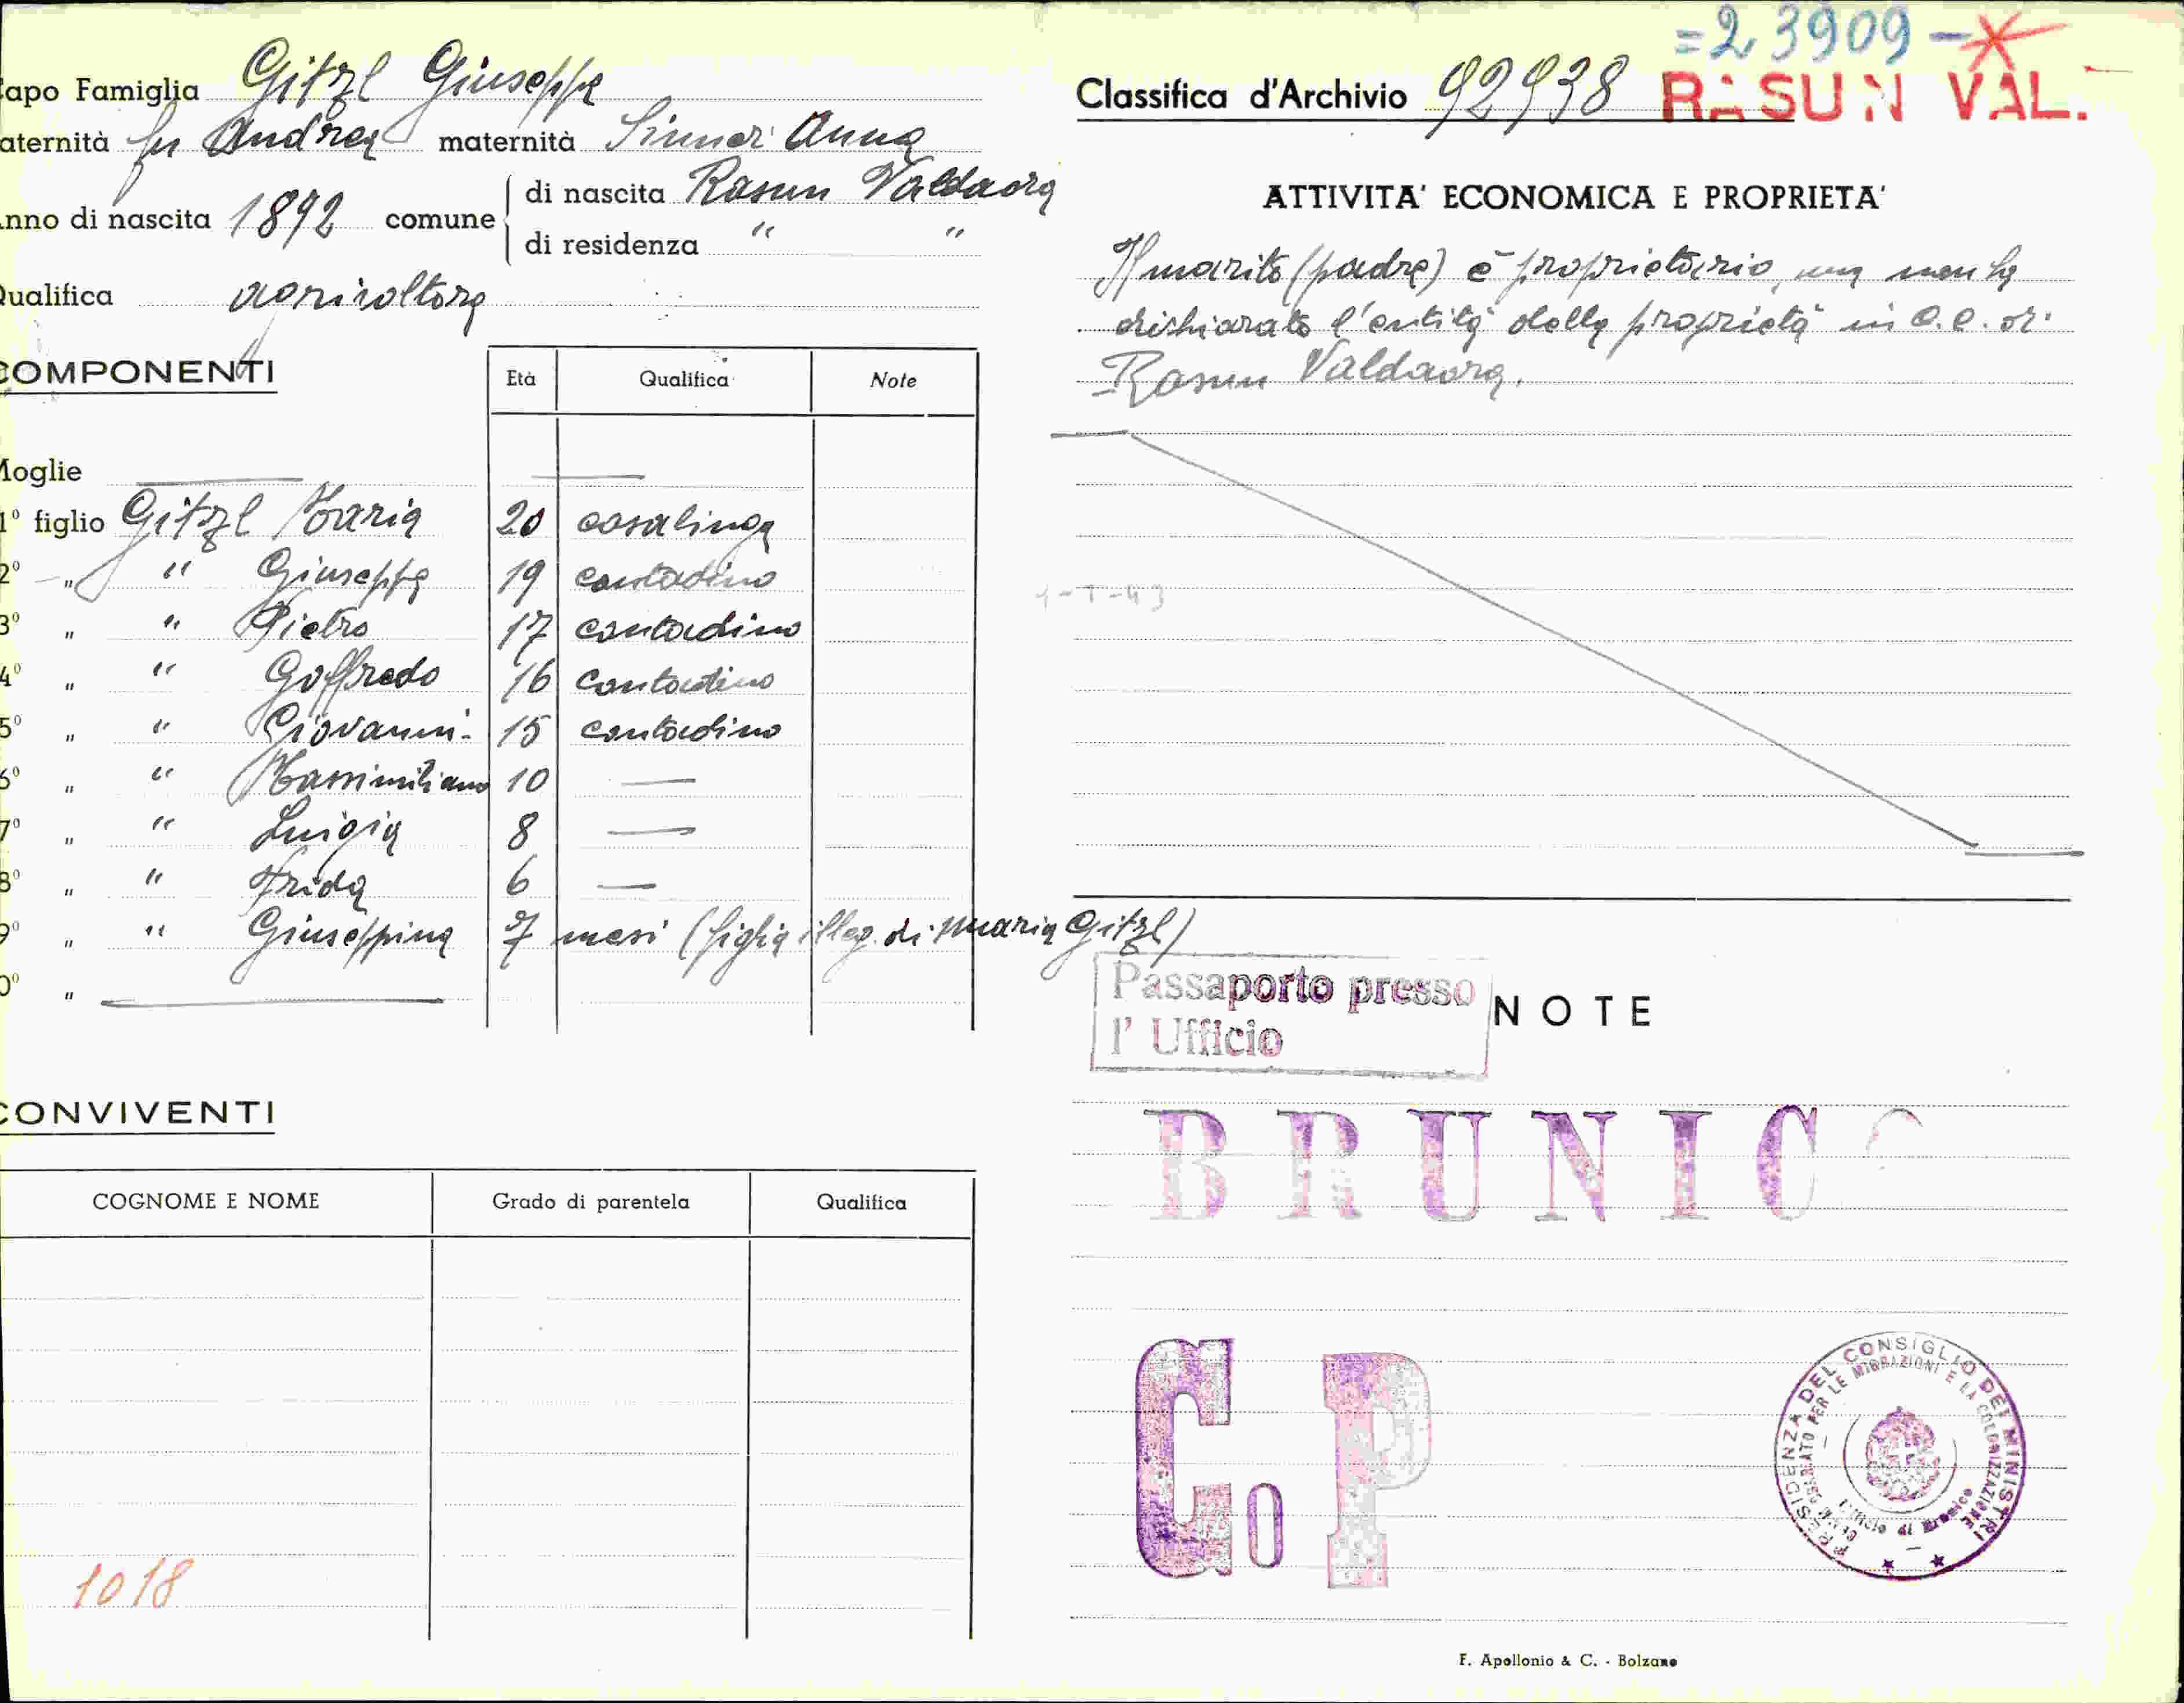 apo Famiglia Gitzl Giuseppe
aternità fu Andrea maternità Sinner Anna
nno di nascita 1892 comune di nascita Rasun Valdaora
di residenza " "
Qualifica agricoltore
COMPONENTI Età Qualifica Note
Moglie
1° figlio Gitzl Maria 20 casalinga
2° " " Giuseppe 19 contadino
3° " " Pietro 17 contadino
4° " " Goffredo 16 contadino
5° " " Giovanni 15 contadino
6° " " Massimiliano 10 —
7° " " Luigia 8 —
8° " " Frida 6 —
9° " " Giuseppina 7 mesi (figlia illeg. di Maria Gitzl)
0° "
CONVIVENTI
COGNOME E NOME Grado di parentela Qualifica
1018
=23909-
Classifica d'Archivio 92938 RASUN VAL.
ATTIVITA' ECONOMICA E PROPRIETA'
Il marito (padre) è proprietario, ma non ha
dichiarato l'entità della proprietà in C.C. di
Rasun Valdaora.
1-1-43
Passaporto presso
l' Ufficio
NOTE
BRUNICO
C.P
PRESIDENZA DEL CONSIGLIO DEI MINISTRI
PER LE MIGRAZIONI E LA COLONIZZAZIONE
Ufficio di Brunico
F. Apollonio & C. - Bolzano